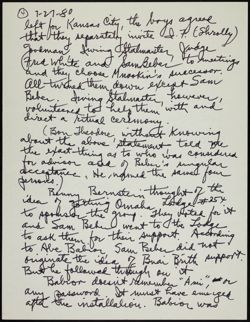 ④ 7-27-80
left for Kansas City, the boys agreed
that they separately invite J. F. (Shrolly)
Goodman, Irving Stalmaster, Judge
Fred White and Sam Beber, to meetings
and they choose Mnookin's successor.
All turned them down except Sam
Beber. Irving Stalmaster, however,
volunteered to help them with and
direct a ritual ceremony.
(Bom Theodore without knowing
about the above statement told me
the same thing as to who was considered
for advisor ahead of Beber's
acceptance. He named the same four
persons).
Benny Bernstein thought of the
idea of getting Omaha Lodge #354
to sponsor the group. They voted for it
and Sam Beber went to the Lodge
to ask them for their support. According
to Abe Babior, Sam Beber did not
originate the idea of Bnai Brith support
But he followed through on it
Babior doesn't remember "Ami" or
any password. It must have emerged
after the installation. Babior was